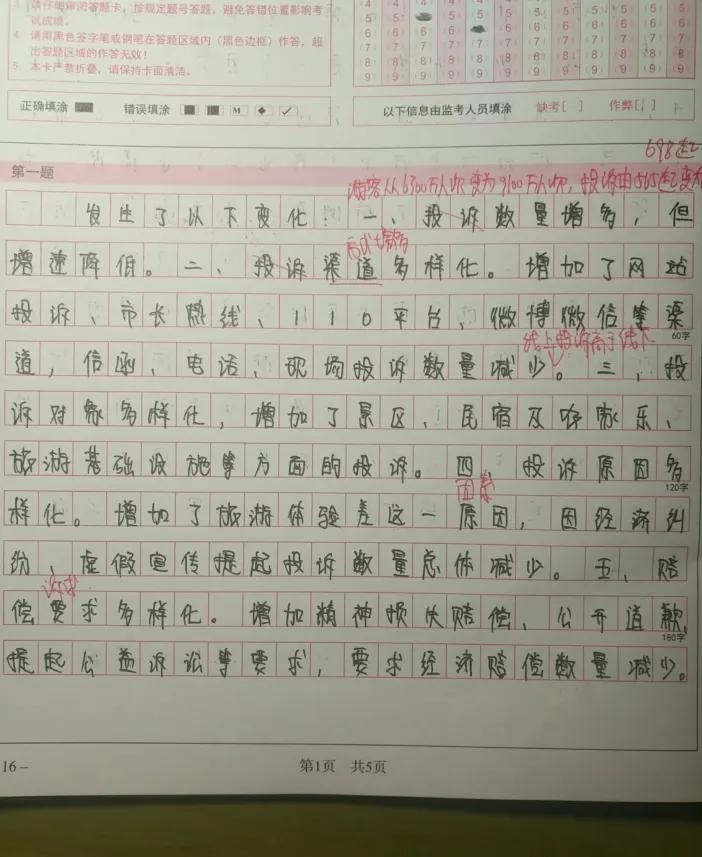 3. 请仔细审阅答题卡，按规定题号答题，避免答错位置影响考
试成绩。
4. 请用黑色签字笔或钢笔在答题区域内（黑色边框）作答，超
出答题区域的作答无效！
5. 本卡严禁折叠，请保持卡面清洁。
正确填涂 错误填涂
以下信息由监考人员填涂 缺考[ ] 作弊[ ]
698起
第一题
游客从6300万人次变为9100万人次，投诉由515起变为
发生了以下变化：一、投诉数量增多，但
方式增多
增速降低。二、投诉渠道多样化。增加了网站
投诉、市长热线、110平台、微博微信等渠
60字
线上投诉高于线下
道，信函、电话、现场投诉数量减少。三、投
诉对象多样化，增加了景区、民宿及农家乐、
旅游基础设施等方面的投诉。四、投诉原因多
120字
因素
样化。增加了旅游体验差这一原因，因经济纠
纷、虚假宣传提起投诉数量总体减少。五、赔
诉求
偿要求多样化。增加精神损失赔偿、公开道歉、
180字
提起公益诉讼等要求，要求经济赔偿数量减少。
16 –
第1页 共5页